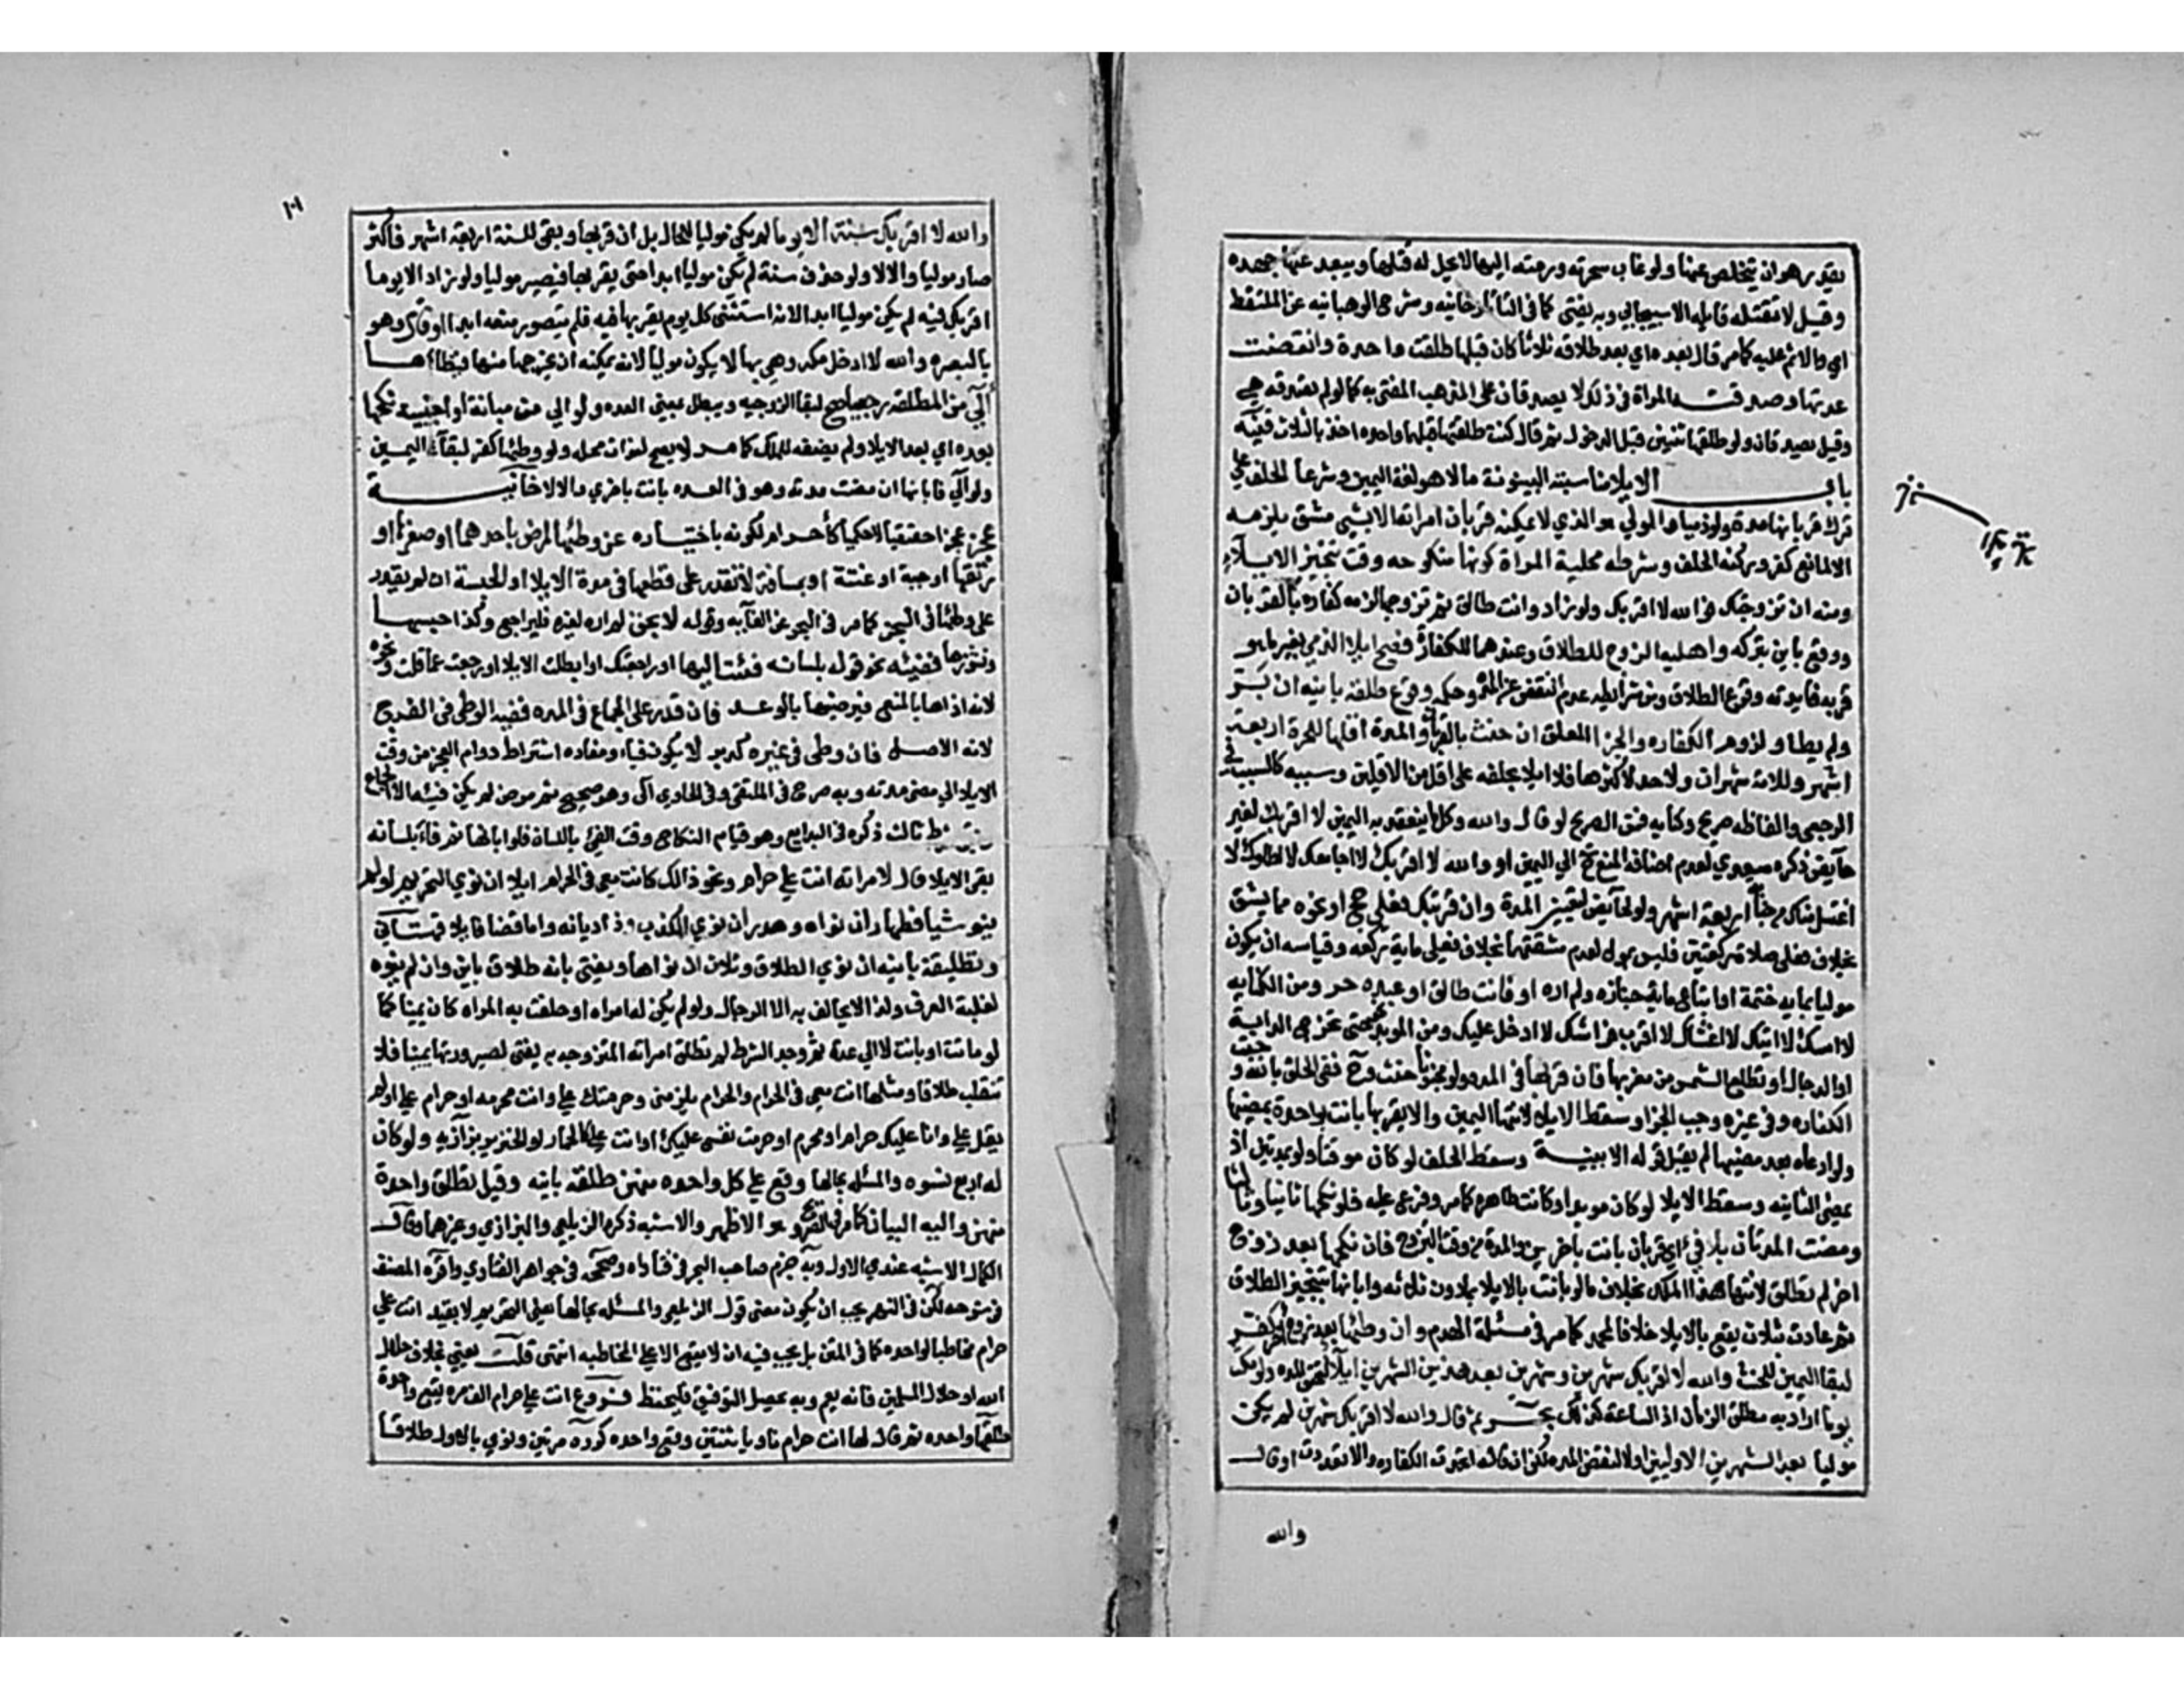 يقدر هو ان يتخلص عنها ولو غاب سحرته وردته اليها لا يحل له قتلها ويبعد عنها جهده
وقيل لا تقتله قايله الاسبيجابي وبه يفتى كما في التاتارخانيه وشرح الوهبانيه عن الملتقط
اي والاثم عليه كما مر قال بعده اي بعد طلاقه ثلاثا كان قبلها طلقت واحدة وانقضت
عدتها وصدقته المراة في ذلك لا يصدقان على المذهب المفتى به كما لو لم تصدقه هي
وقيل يصدقان ولو طلقها ثنتين قبل الدخول ثم قال كنت طلقتها قبلها واحده اخذ بالثلاث قنيه
باب الايلا مناسبته البينونة مالا هو لغة اليمين وشرعا الحلف على
ترك قربانها مدة ولو ذميا والمولي هو الذي لا يمكنه قربان امراته الا بشي مشق يلزمه
الا لمانع كفر وركنه الحلف وشرطه محلية المراة كونها منكوحه وقت تنجيز الايلاء
ومنه ان تزوجتك فوالله لا اقربك ولو زاد وانت طالق ثم تزوجها لزمه كفاره بالقربان
ووقع باين بتركه واهلية الزوج للطلاق وعندهما للكفارة فصح ايلا الذمي بغير ما هو
قربه فايدته وقوع الطلاق ومن شرايطه عدم النقص عن المدة وحكمه وقوع طلقه باينه ان بر
ولم يطا ولزوم الكفاره والجزا المعلق ان حنث بالقربان والمدة اقلها للحرة اربعة
اشهر وللامة شهران ولا حد لاكثرها فلا ايلا بحلفه على اقل من الاقلين وسببه كالسبب في
الرجعي والفاظه صريح وكنايه فمن الصريح لو قال والله وكل ما ينعقد به اليمين لا اقربك لغير
حايض ذكره سعدي لعدم اضافة المنع ح الى اليمين او والله لا اقربك لا اجامعك لا اطاوك لا
اغتسل منك من جنابة اربعة اشهر ولو لحايض لتعيين المدة وان قربتك فعلي حج او نحوه مما يشق
بخلاف فعلي صلاة ركعتين فليس بمول لعدم مشقتهما بخلاف فعلي ماية ركعه وقياسه ان يكون
موليا بماية ختمة او اتباع ماية جنازه ولم اره او فانت طالق او عبده حر ومن الكنايه
لا امسك لا اتيك لا اغشاك لا اقرب فراشك لا ادخل عليك ومن الموبد نحو حتى تخرج الدابة
او الدجال او تطلع الشمس من مغربها فان قربها في المده ولو مجنونا حنث وح ففي الحلف بالله وجبت
الكفاره وفي غيره وجب الجزا وسقط الايلا لانتها اليمين والا يقربها بانت بواحدة بمضيها
ولو ادعاه بعد مضيها لم يقبل قوله الا ببينة وسقط الحلف لو كان موقتا ولو بمدتين اذ
بمضي الثانيه وسقط الايلا لو كان موبدا وكانت طاهره كما مر وفرع عليه فلو نكحها ثانيا وثالثا
ومضت المدتان بلا فيء اي قربان بانت باخرين والمدة من وقت التزوج فان نكحها بعد زوج
اخر لم تطلق لانتها هذا الملك بخلاف ما لو بانت بالايلا بما دون ثلاثه وابانها بتنجيز الطلاق
ثم عادت بثلاث يقع بالايلا خلافا لمحمد كما مر في مسئلة الهدم وان وطئها بعد زوج اخر كفر
لبقا اليمين للحنث والله لا اقربك شهرين وشهرين بعد هذين الشهرين ايلا لتحقق المده ولو مكث
يوما اراد به مطلق الزمان اذ الساعة كذلك بحر ثم قال والله لا اقربك شهرين لم يكن
موليا بعد الشهرين الاوليين اولا لنقص المده لكن ان قاله اتحدت الكفاره والا تعددت او قال
والله
١٠٦
والله لا اقربك سنة الا يوما لم يكن موليا للحال بل ان قربها وبقي للسنة اربعة اشهر فاكثر
صار موليا والا لا ولو حذف سنة لم يكن موليا ابدا حتى يقربها فيصير موليا ولو زاد الا يوما
اقربك فيه لم يكن موليا ابدا لانه استثنى كل يوم يقربها فيه فلم يتصور منعه ابدا او قال وهو
بالبصره والله لا ادخل مكه وهي بها لا يكون موليا لانه يمكنه ان يخرجها منها فيطاها
آلى من المطلقة رجعيا صح لبقا الزوجيه ويبطل بمضي العده ولو الى من مبانة او اجنبية نكحها
بعده اي بعد الايلا ولم يضفه للملك كما مر لا يصح لفوات محله ولو وطئها كفر لبقاء اليمين
ولو آلى فابانها ان مضت مدته وهو في العده بانت باخرى والا لا خانية
عجز عجزا حقيقيا لا حكميا كاحرام لكونه باختياره عن وطئها لمرض باحدهما او صغرها او
رتقها او جبه او عنته او بمسافة لا تقدر على قطعها في مدة الايلا او لحبسه ان لم يقدر
على وطئها في السجن كما مر في البحر عن الغايه وقوله لا بحق لم اره لغيره فليراجع وكذا حبسها
ونشوزها ففيئه نحو قوله بلسانه فئت اليها او راجعتك او ابطلت الايلا او رجعت عما قلت ونحوه
لانه اذاها بالمنع فيرضيها بالوعد فان قدر على الجماع في المده ففيه الوطى في الفرج
لانه الاصل فان وطى في غيره كدبر لا يكون فيا ومفاده اشتراط دوام العجز من وقت
الايلا الى مضي مدته وبه صرح في الملتقى وفي الحاوي آلى وهو صحيح ثم مرض لم يكن فيئه الا الجماع
وشرط ثالث ذكره في البدايع وهو قيام النكاح وقت الفيئ باللسان فلو ابانها ثم فاء بلسانه
بقي الايلا قال لامراته انت علي حرام ونحو ذالك كانت معي في الحرام ايلا ان نوى التحريم او لم
ينو شيا وظهار ان نواه وهدر ان نوى الكذب وذا ديانه واما قضا فايلا قهستاني
وتطليقة باينه ان نوى الطلاق وثلاث ان نواها ويفتى بانه طلاق باين وان لم ينوه
لغلبة العرف ولذا لا يحلف به الا الرجال ولو لم يكن له امراه او حلفت به المراه كان يمينا كما
لو ماتت او بانت لا الى عدة ثم وجد الشرط لم تطلق امراته المتزوجه به يفتى لصيرورتها يمينا فلا
تنقلب طلاقا ومثلها انت معي في الحرام والحرام يلزمني وحرمتك علي وانت محرمه او حرام علي او لم
يقل علي وانا عليك حرام او محرم او حرمت نفسي عليك او انت علي كالحمار او الخنزير بزازيه ولو كان
له اربع نسوه والمسئله بحالها وقع على كل واحده منهن طلقه باينه وقيل تطلق واحدة
منهن واليه البيان كما مر في الصريح وهو الاظهر والاشبه ذكره الزيلعي والبزازي وغيرهما وقال
الكمال الاشبه عندي الاول وبه جزم صاحب البحر في فتاواه وصححه في جواهر الفتاوي واقره المصنف
في شرحه لكن في النهر يجب ان يكون معنى قول الزيلعي والمسئله بحالها يعني التحريم لا بقيد انت علي
حرام مخاطبا لواحده كما في المتن بل يجب فيه ان لا يقع الا على المخاطبه انتهى قلت يعني بخلاف حلال
الله او حلال المسلمين فانه يعم وبه يحصل التوفيق فليحفظ فروع انت علي حرام الف مره يقع واحدة
طلقها واحده ثم قال لها انت حرام ناويا ثنتين وقع واحده كرره مرتين ونوى بالاول طلاقا